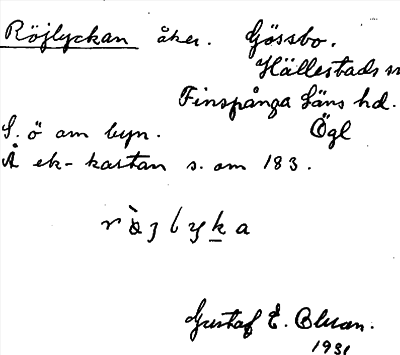 Röjlyckan åker. Gössbo.
Hällestads sn
Finspånga läns hd.
S. ö om byn. Ögl
Å ek-kartan s. om 183.
Gustaf E. Olsson.
1931